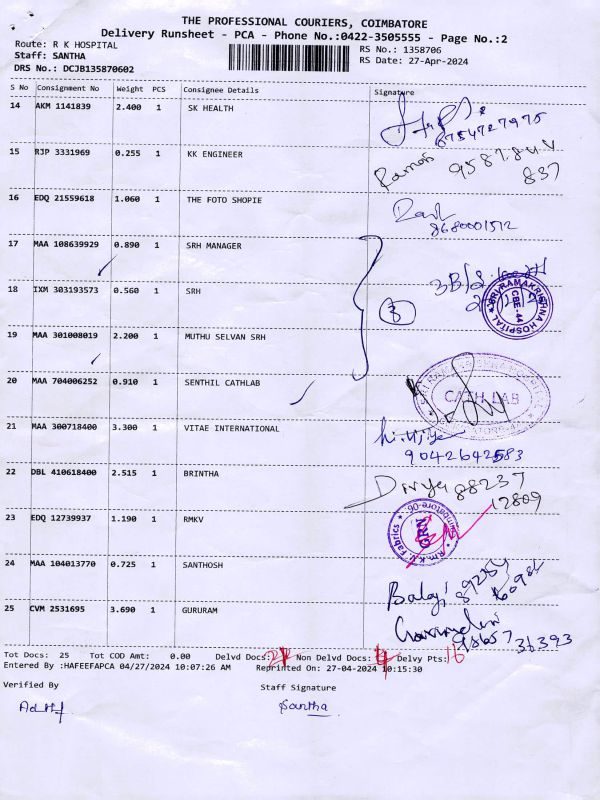 THE PROFESSIONAL COURIERS, COIMBATORE
Delivery Runsheet - PCA - Phone No.:0422-3505555 - Page No.:2
Route: R K HOSPITAL
RS No.: 1358706
Staff: SANTHA
RS Date: 27-Apr-2024
DRS No.: DCJB135870602
S No Consignment No Weight PCS Consignee Details Signature
14 AKM 1141839 2.400 1 SK HEALTH
8754727975
15 RJP 3331969 0.255 1 KK ENGINEER
Raman
837
16 EDQ 21559618 1.060 1 THE FOTO SHOPIE
8680001512
17 MAA 108639929 0.890 1 SRH MANAGER
18 IXM 303193573 0.560 1 SRH
SRI RAMAKRISHNA HOSPITAL
CBE-44
19 MAA 301008019 2.200 1 MUTHU SELVAN SRH
20 MAA 704006252 0.910 1 SENTHIL CATHLAB
CATH LAB
21 MAA 300718400 3.300 1 VITAE INTERNATIONAL
9042642583
22 DBL 410618400 2.515 1 BRINTHA
Divya 88237
12809
23 EDQ 12739937 1.190 1 RMKV
GRN
24 MAA 104013770 0.725 1 SANTHOSH
Balaji
25 CVM 2531695 3.690 1 GURURAM
98657 36393
Tot Docs: 25 Tot COD Amt: 0.00 Delvd Docs: Non Delvd Docs: Delvy Pts: 16
Entered By :HAFEEFAPCA 04/27/2024 10:07:26 AM Reprinted On: 27-04-2024 10:15:30
Verified By Staff Signature
Santha